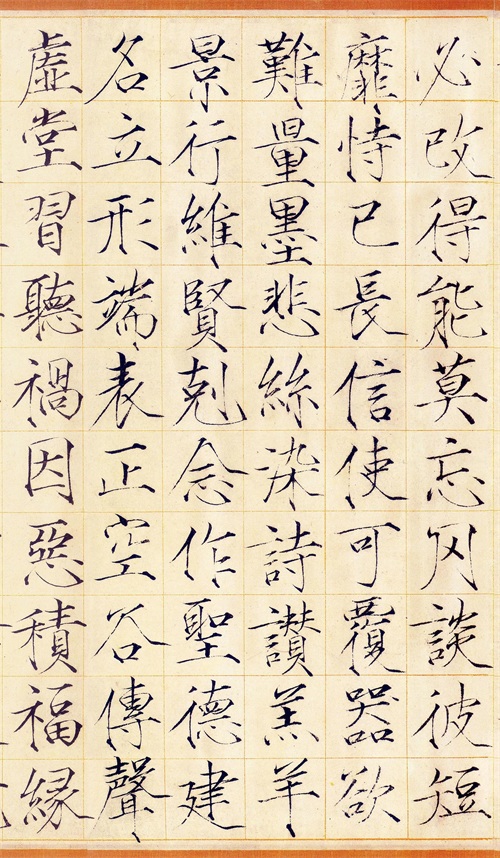 必改得能莫忘罔談彼短
靡恃己長信使可覆器欲
難量墨悲絲染詩讃羔羊
景行維賢剋念作聖德建
名立形端表正空谷傳聲
虛堂習聽禍因惡積福緣